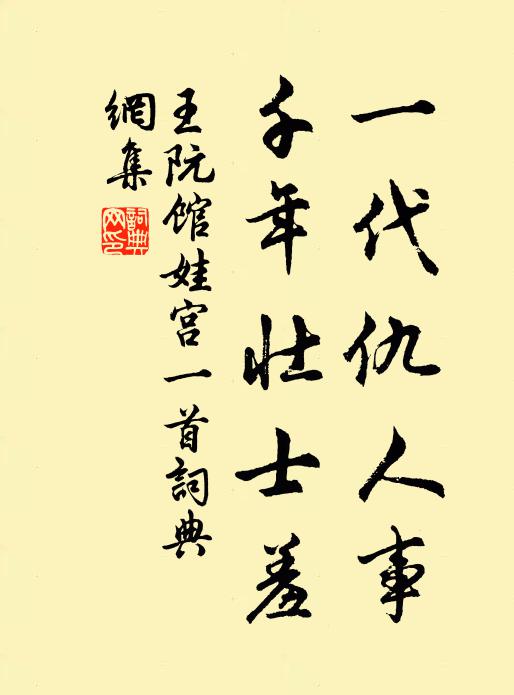 一代仇人事
千年壮士羞
王阮館娃宫一首詞典
網集
詞典网印